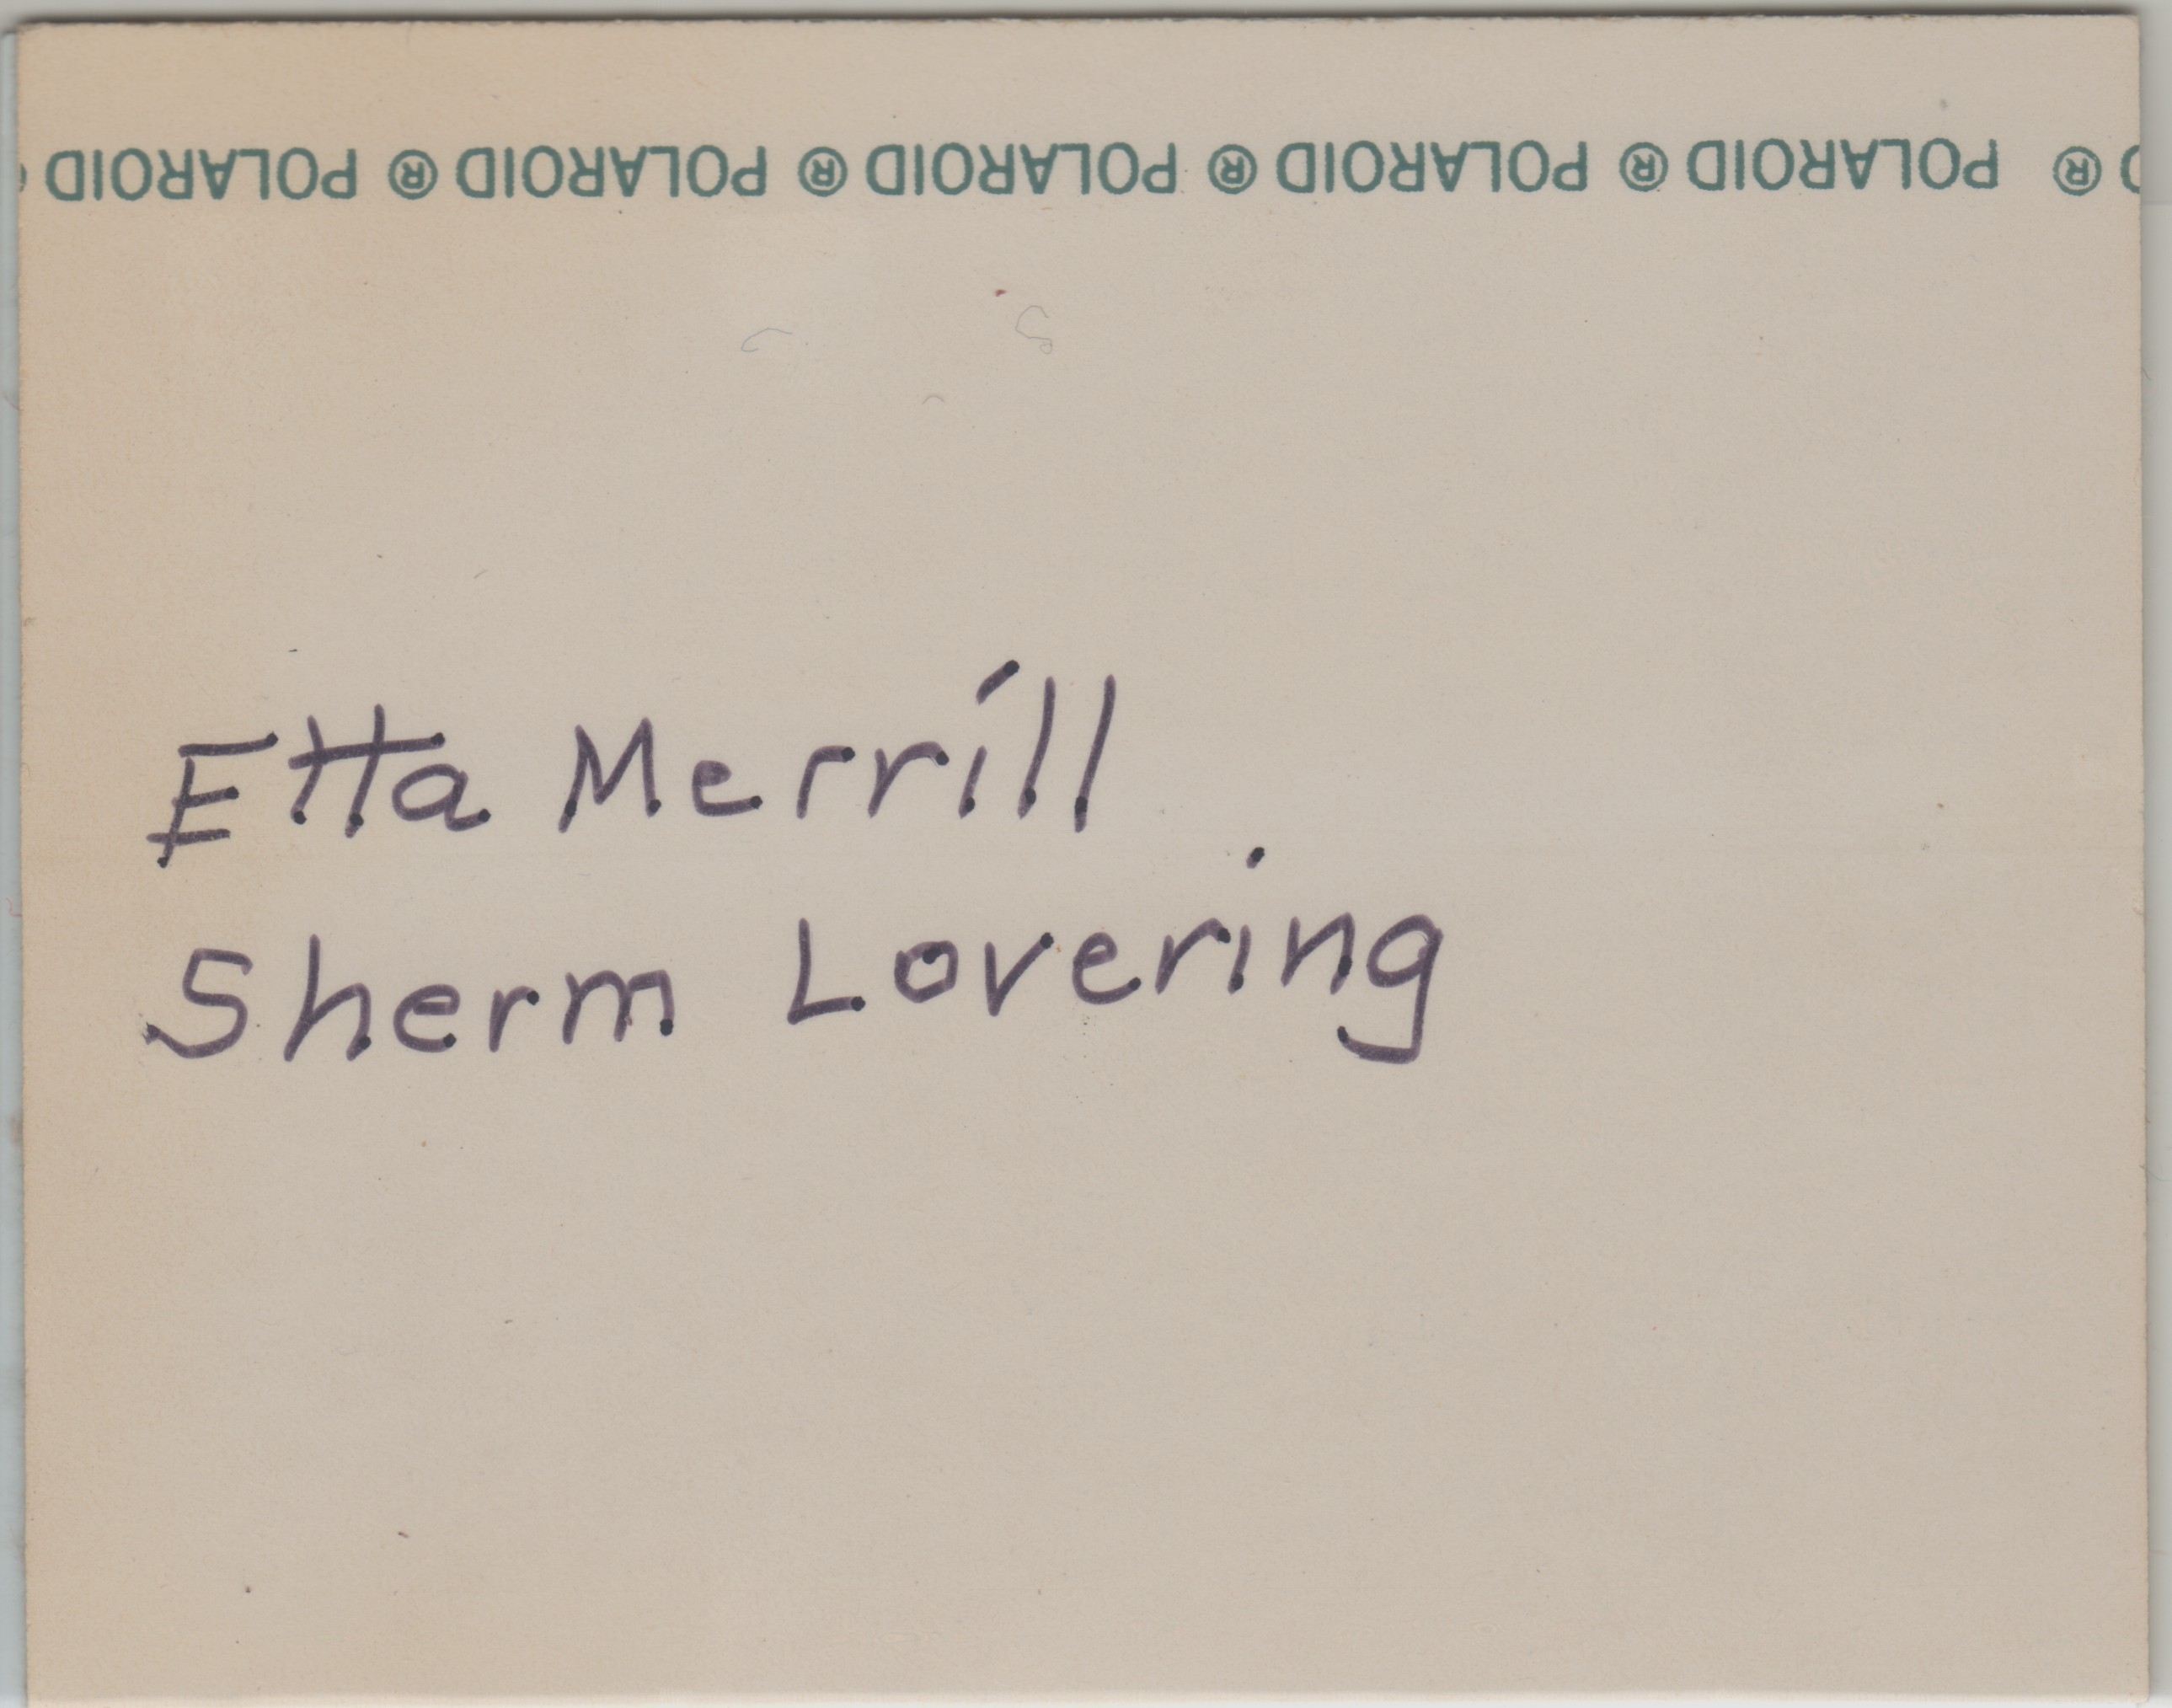 POLAROID ® POLAROID ® POLAROID ® POLAROID ® POLAROID
Etta Merrill
Sherm Lovering